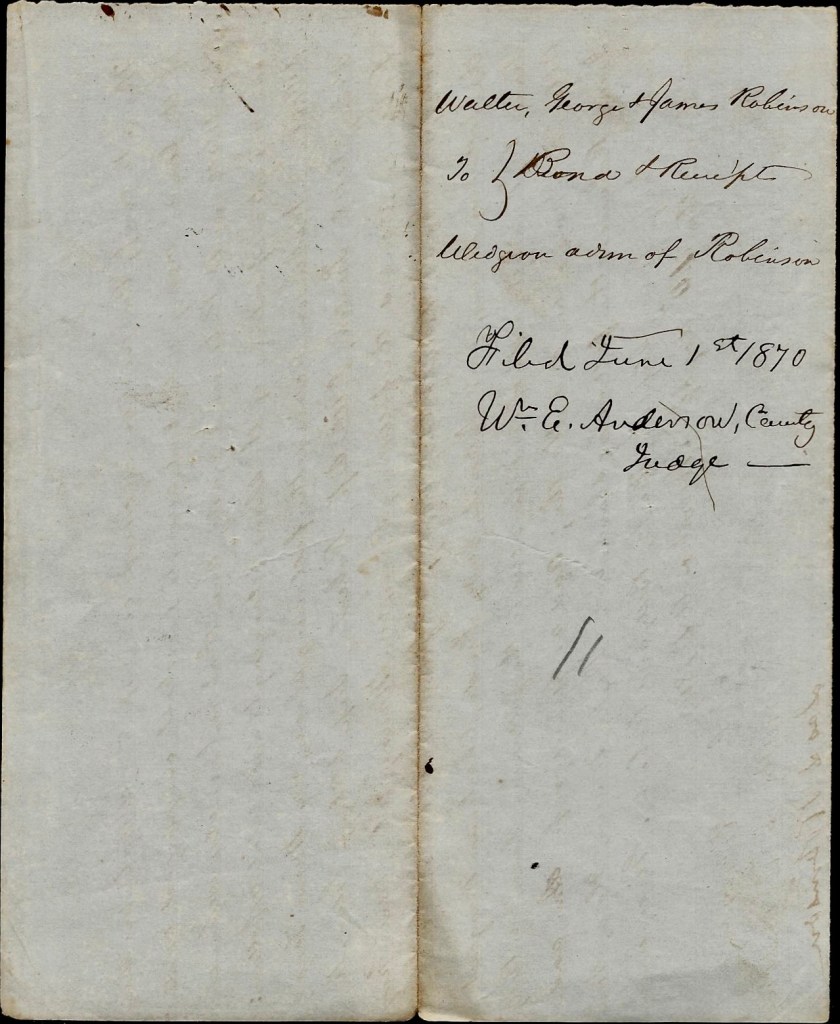 Walter, George & James Robinson
To } Bond & Receipts
adm of Robinson
Filed June 1st 1870
Wm. E. Anderson, County
Judge —
11